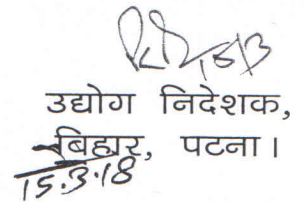 15/3
उद्योग निदेशक,
बिहार, पटना।
15.3.18